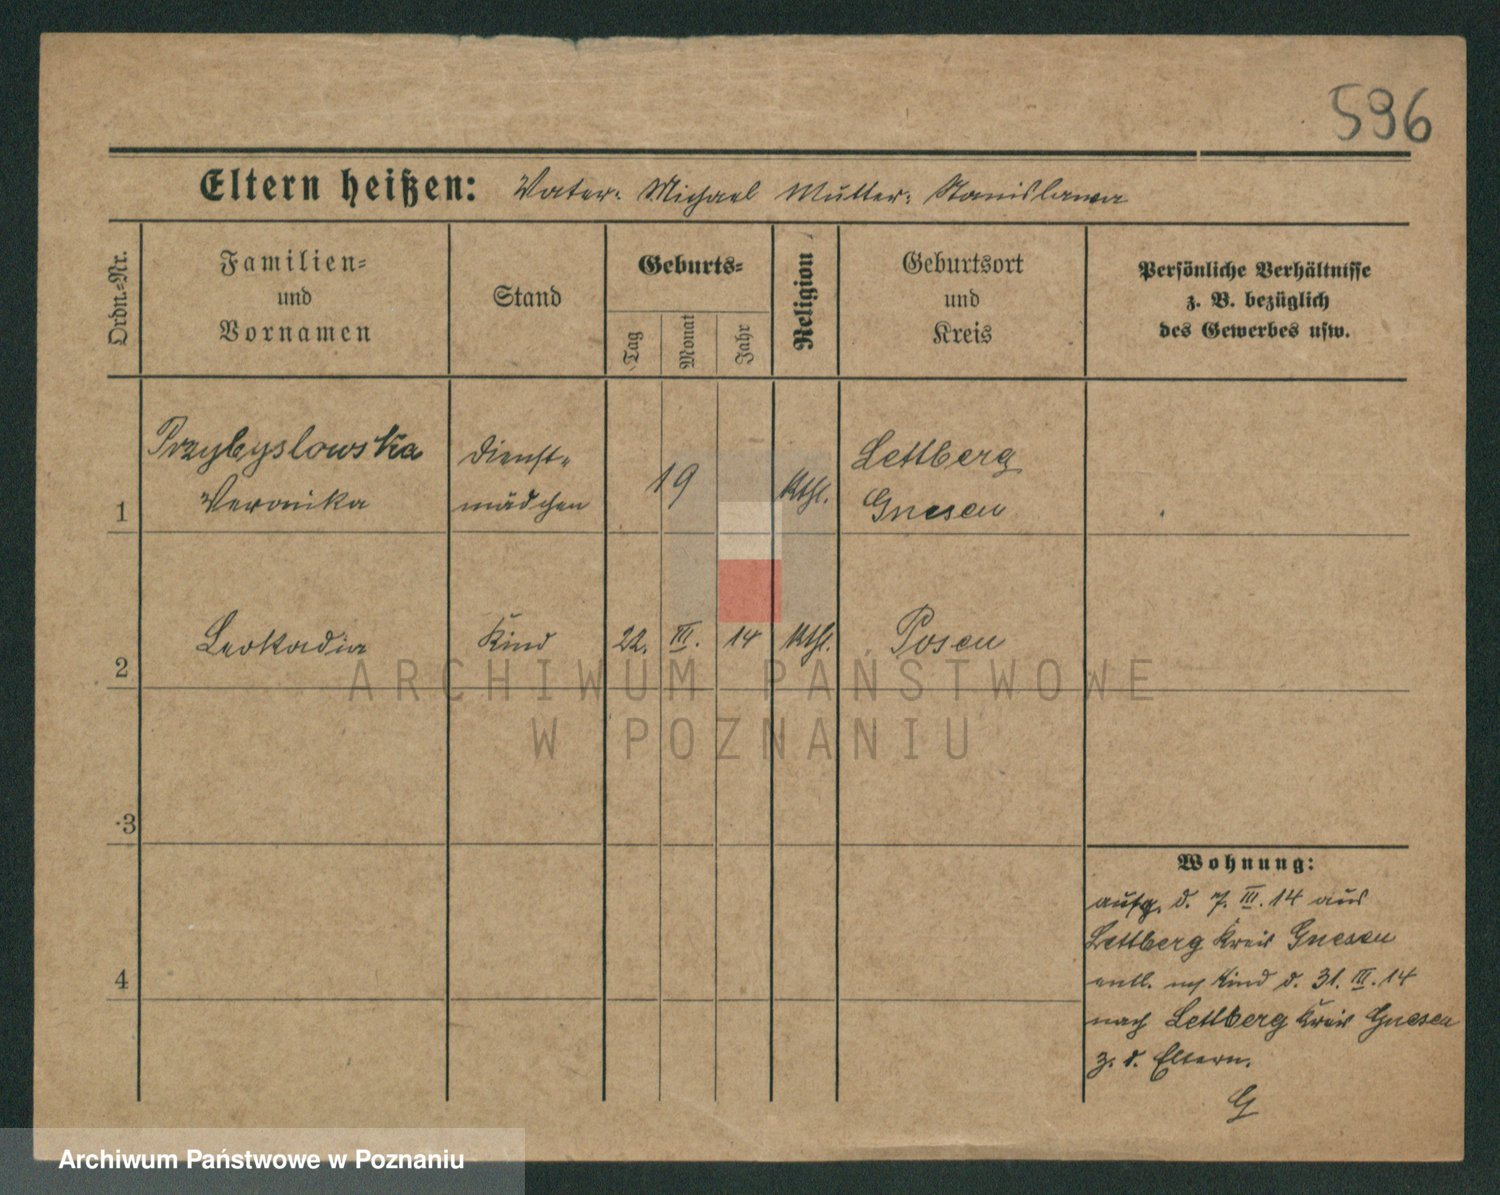 596
Eltern heißen: Vater: Michael Mutter: Stanislawa
Ordn.-Nr.
Familien-
und
Vornamen
Stand
Geburts-
Tag
Monat
Jahr
Religion
Geburtsort
und
Kreis
Persönliche Verhältnisse
z. B. bezüglich
des Gewerbes usw.
1
Przybyslowska
Veronika
Dienst-
mädchen
19
kthl.
Lettberg
Gnesen
2
Leokadia
Kind
22.
III.
14
kthl.
Posen
ARCHIWUM PAŃSTWOWE
W POZNANIU
3
4
Wohnung:
aufg. d. 7. III. 14 aus
Lettberg Kreis Gnesen
entl. Kind d. 31. III. 14
nach Lettberg Kreis Gnesen
z. d. Eltern.
G
Archiwum Państwowe w Poznaniu